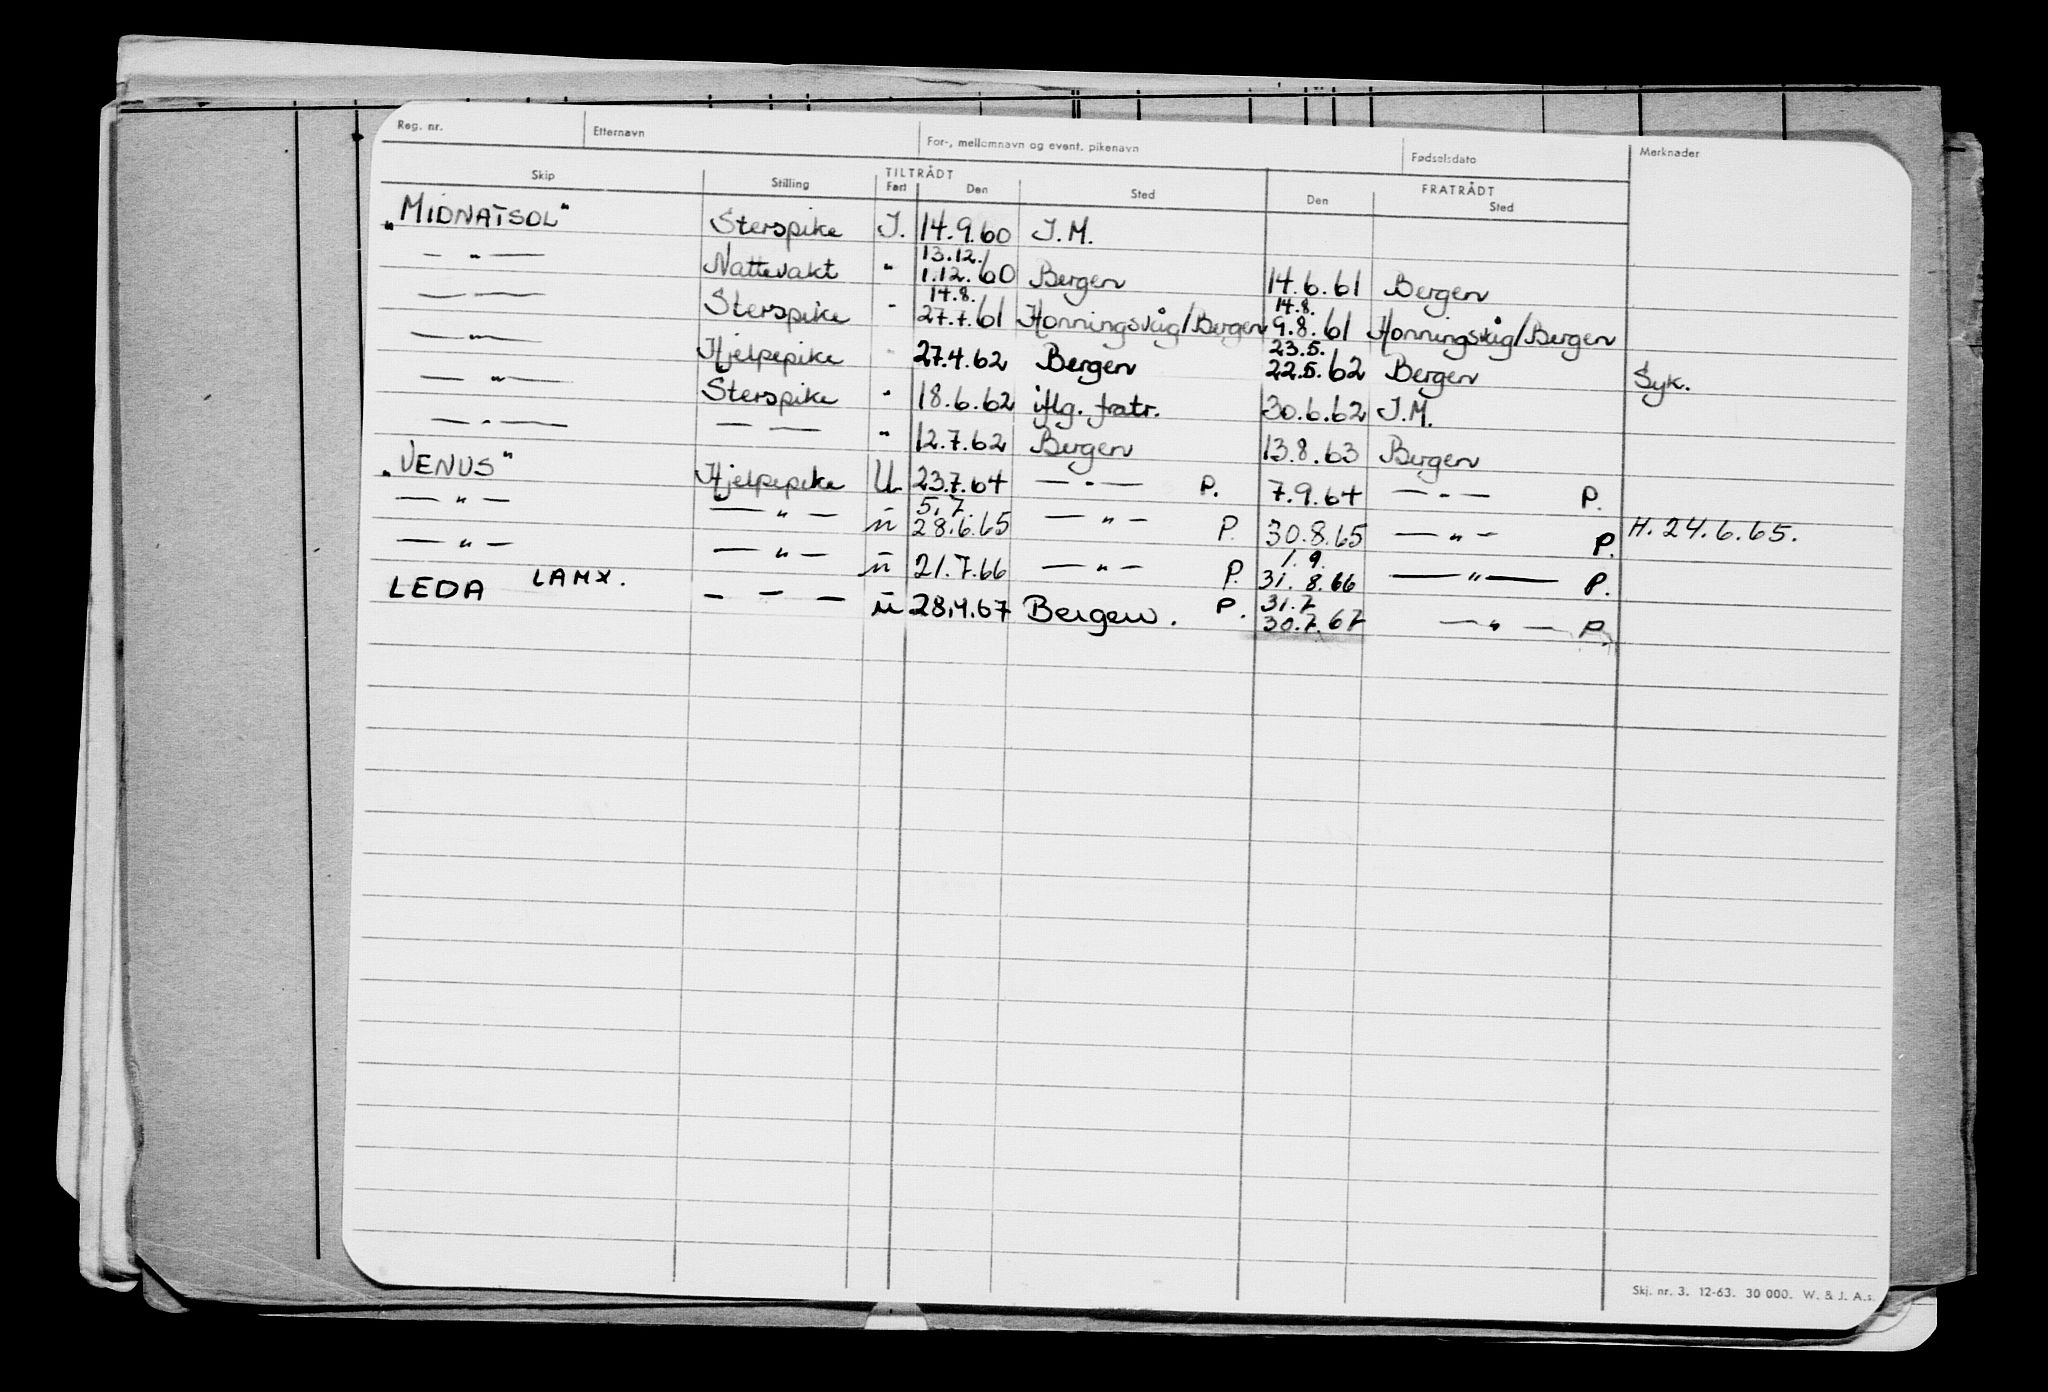 Reg. nr. Etternavn For-, mellomnavn og event. pikenavn Fødselsdato Merknader
TILTRÅDT FRATRÅDT
Skip Stilling Fart Den Sted Den Sted
„MIDNATSOL" Sterspike I. 14.9.60 I.M.
— " — Nattevakt " 13.12./1.12.60 Bergen 14.6.61 Bergen
— " — Sterspike " 14.8. 27.7.61 Honningsvåg/Bergen 14.8. 9.8.61 Honningsvåg/Bergen
— " — Hjelpepike " 27.4.62 Bergen 23.5. 22.5.62 Bergen Syk.
— " — Sterspike " 18.6.62 iflg. fratr. 30.6.62 I.M.
— " — — — " 12.7.62 Bergen 13.8.63 Bergen
„VENUS" Hjelpepike U 23.7.64 — " — P. 7.9.64 — " — P.
— " — — " — " 5.7. 28.6.65 — " — P. 30.8.65 — " — P. H. 24.6.65.
— " — — " — " 21.7.66 — " — P. 1.9. 31.8.66 — " — P.
LEDA LAMX. — — — " 28.4.67 Bergen. P. 31.7 30.7.67 — " — P.
Skj. nr. 3. 12-63. 30 000. W. & J. A.s.